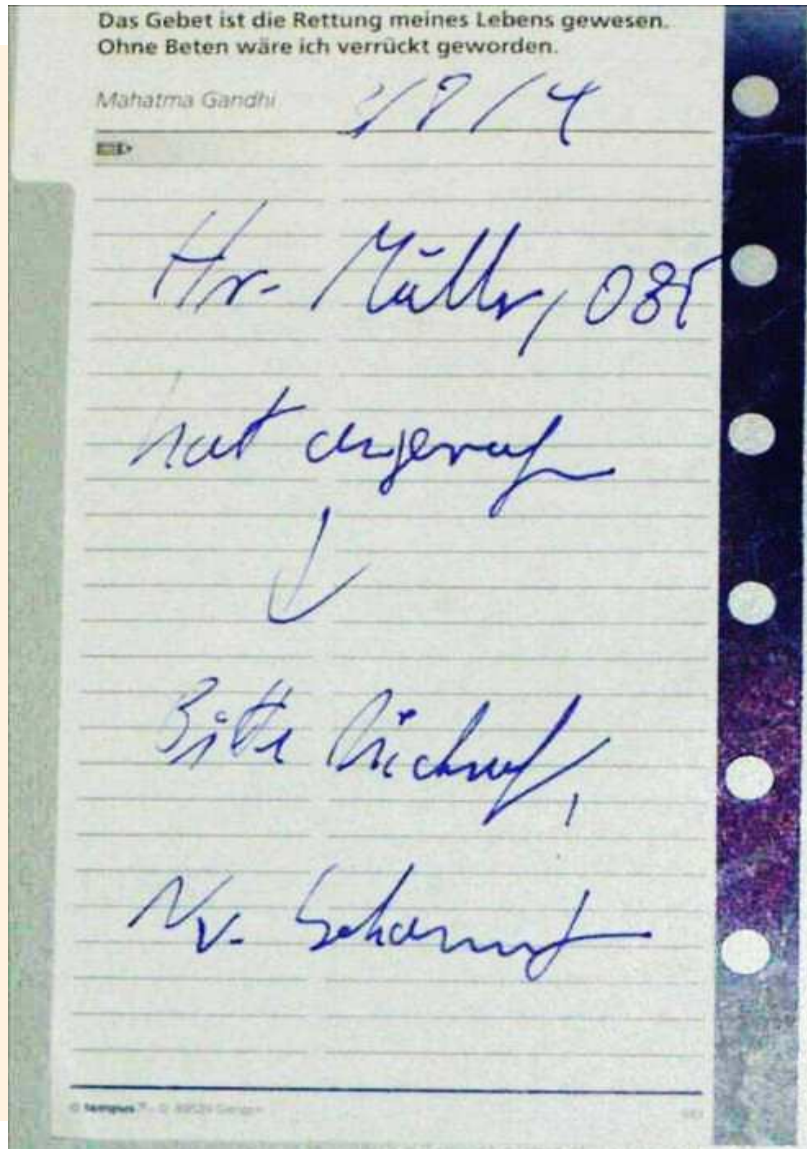 Das Gebet ist die Rettung meines Lebens gewesen.
Ohne Beten wäre ich verrückt geworden.
Mahatma Gandhi
Hr. Müller, OBI
hat angerufen
↓
Bitte Rückruf,
Nr. bekannt
© tempus